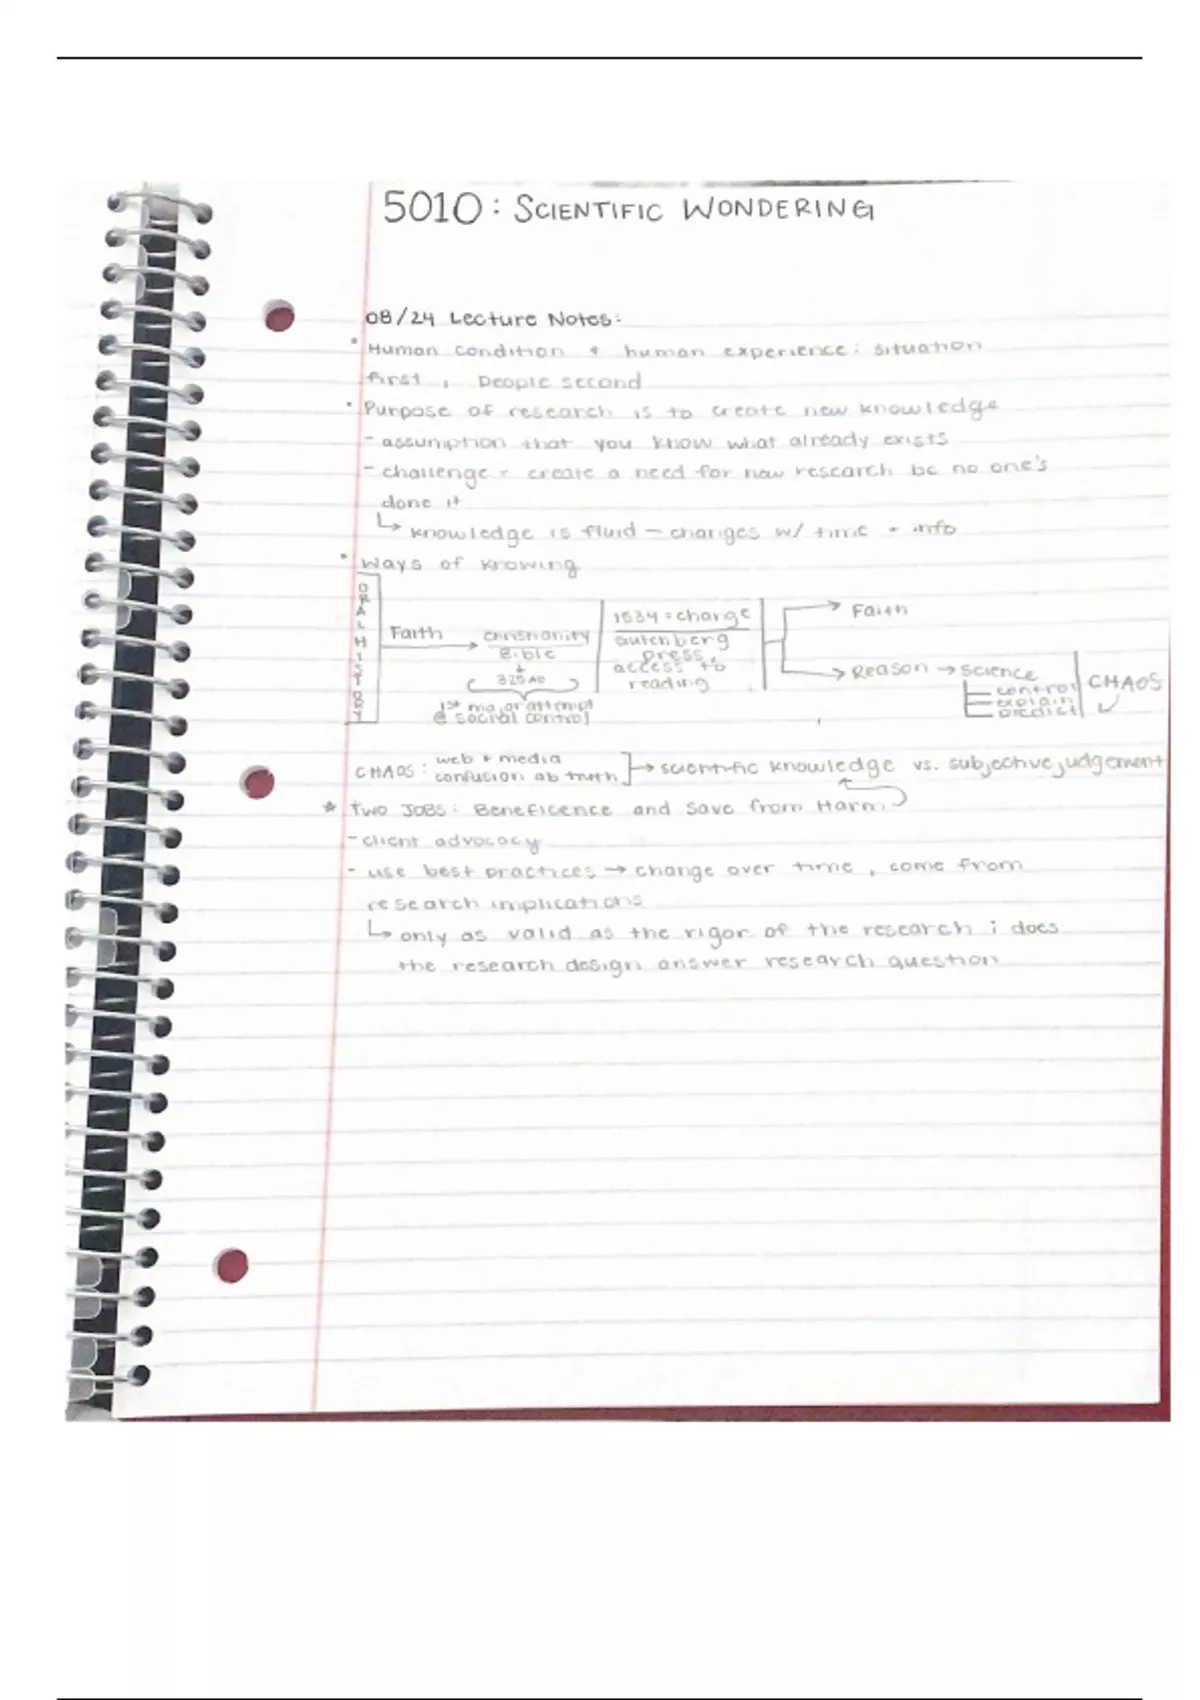 5010: SCIENTIFIC WONDERING
08/24 Lecture Notes:
• Human condition + human experience: situation
first, people second
• Purpose of research is to create new knowledge
- assumption that you know what already exists
- challenge = create a need for new research bc no one's
done it
↳ knowledge is fluid - changes w/ time + info
• Ways of knowing
ORAL HISTORY
Faith → Christianity
Bible
↓
325 AD
1st major attempt
@ social control
1534 = change
Gutenberg
press,
access to
reading
→ Faith
→ Reason → Science
control
explain
predict
CHAOS
CHAOS: web + media
confusion ab truth → scientific knowledge vs. subjective judgement
* TWO JOBS: Beneficence and Save from Harm
- client advocacy
- use best practices → change over time, come from
research implications
↳ only as valid as the rigor of the research; does
the research design answer research question